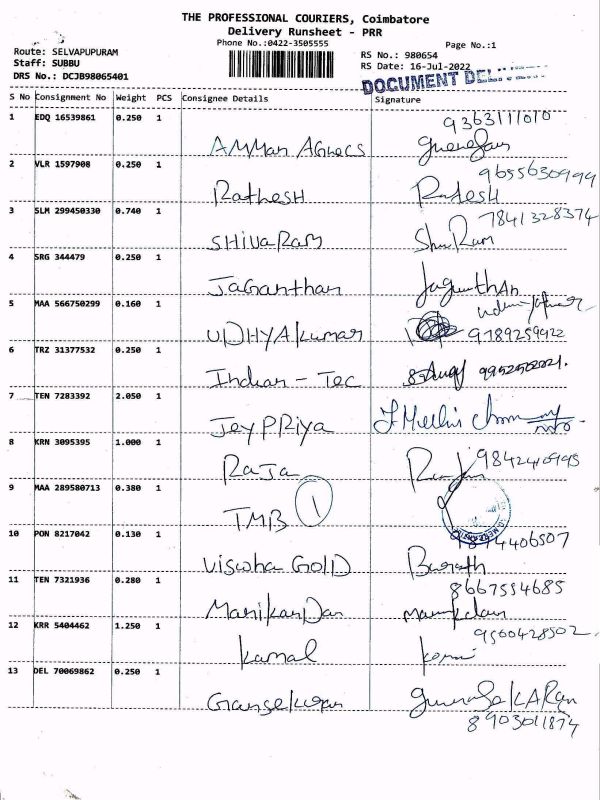 THE PROFESSIONAL COURIERS, Coimbatore
Delivery Runsheet - PRR
Phone No.:0422-3505555
Page No.:1
Route: SELVAPUPURAM
Staff: SUBBU
DRS No.: DCJB98065401
RS No.: 980654
RS Date: 16-Jul-2022
DOCUMENT
S No Consignment No Weight PCS Consignee Details Signature
1 EDQ 16539861 0.250 1
9363111010
AMMan AGnecs
2 VLR 1597908 0.250 1
9655630999
Rathesh RatESH
3 SLM 299450330 0.740 1
7841328374
SHivaRam
4 SRG 344479 0.250 1
JaGanthan JagunthAn
5 MAA 566750299 0.160 1
UDHYAkumar 9789259922
6 TRZ 31377532 0.250 1
Indian - Tec 9952502021.
7 TEN 7283392 2.050 1
Jey PRiya
8 KRN 3095395 1.000 1
RaJa 9842410995
9 MAA 289580713 0.380 1
TMB 1
10 PON 8217042 0.130 1
4406507
Viswha GOLD Barath
11 TEN 7321936 0.280 1
8667554685
ManikanDan
12 KRR 5404462 1.250 1
9500428502
kamal
13 DEL 70069862 0.250 1
GunaSekARan
8903011874